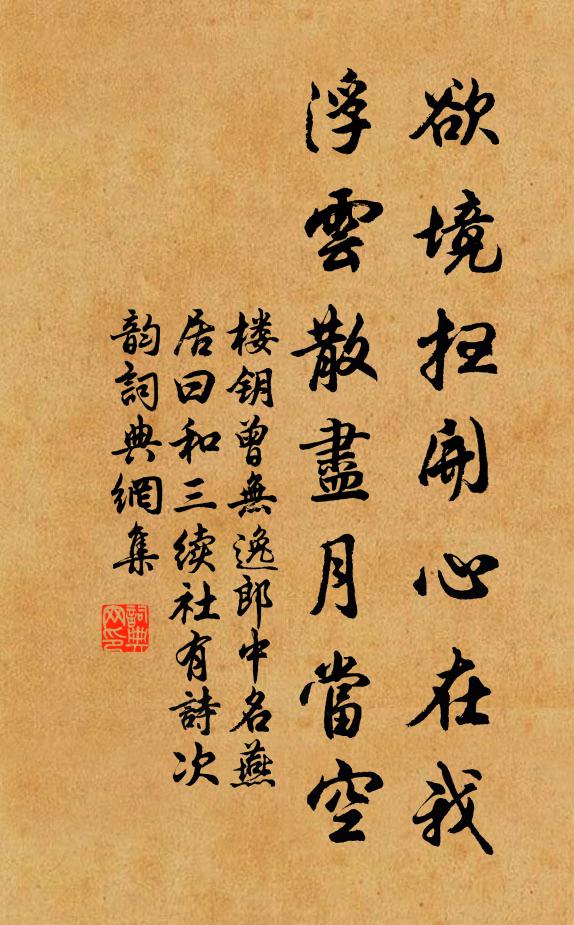 欲境扫開心在我
浮雲散盡月當空
楼钥曾無逸郎中名燕
居曰和三续社有詩次
韵詞典網集
詞典
网印